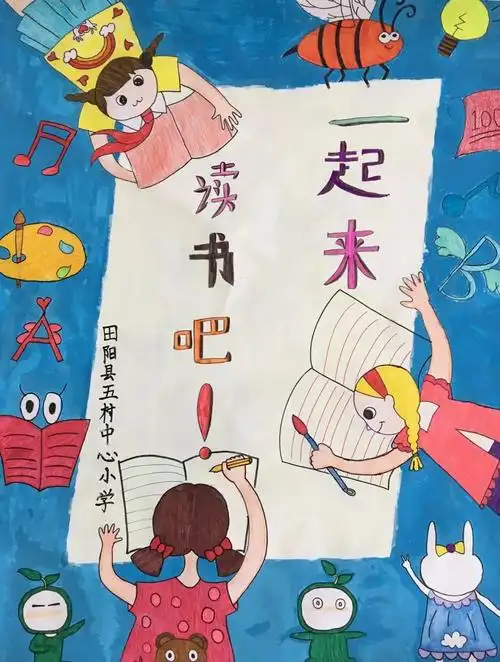 一起来
读书吧！
田阳县五村中心小学
100
A
B